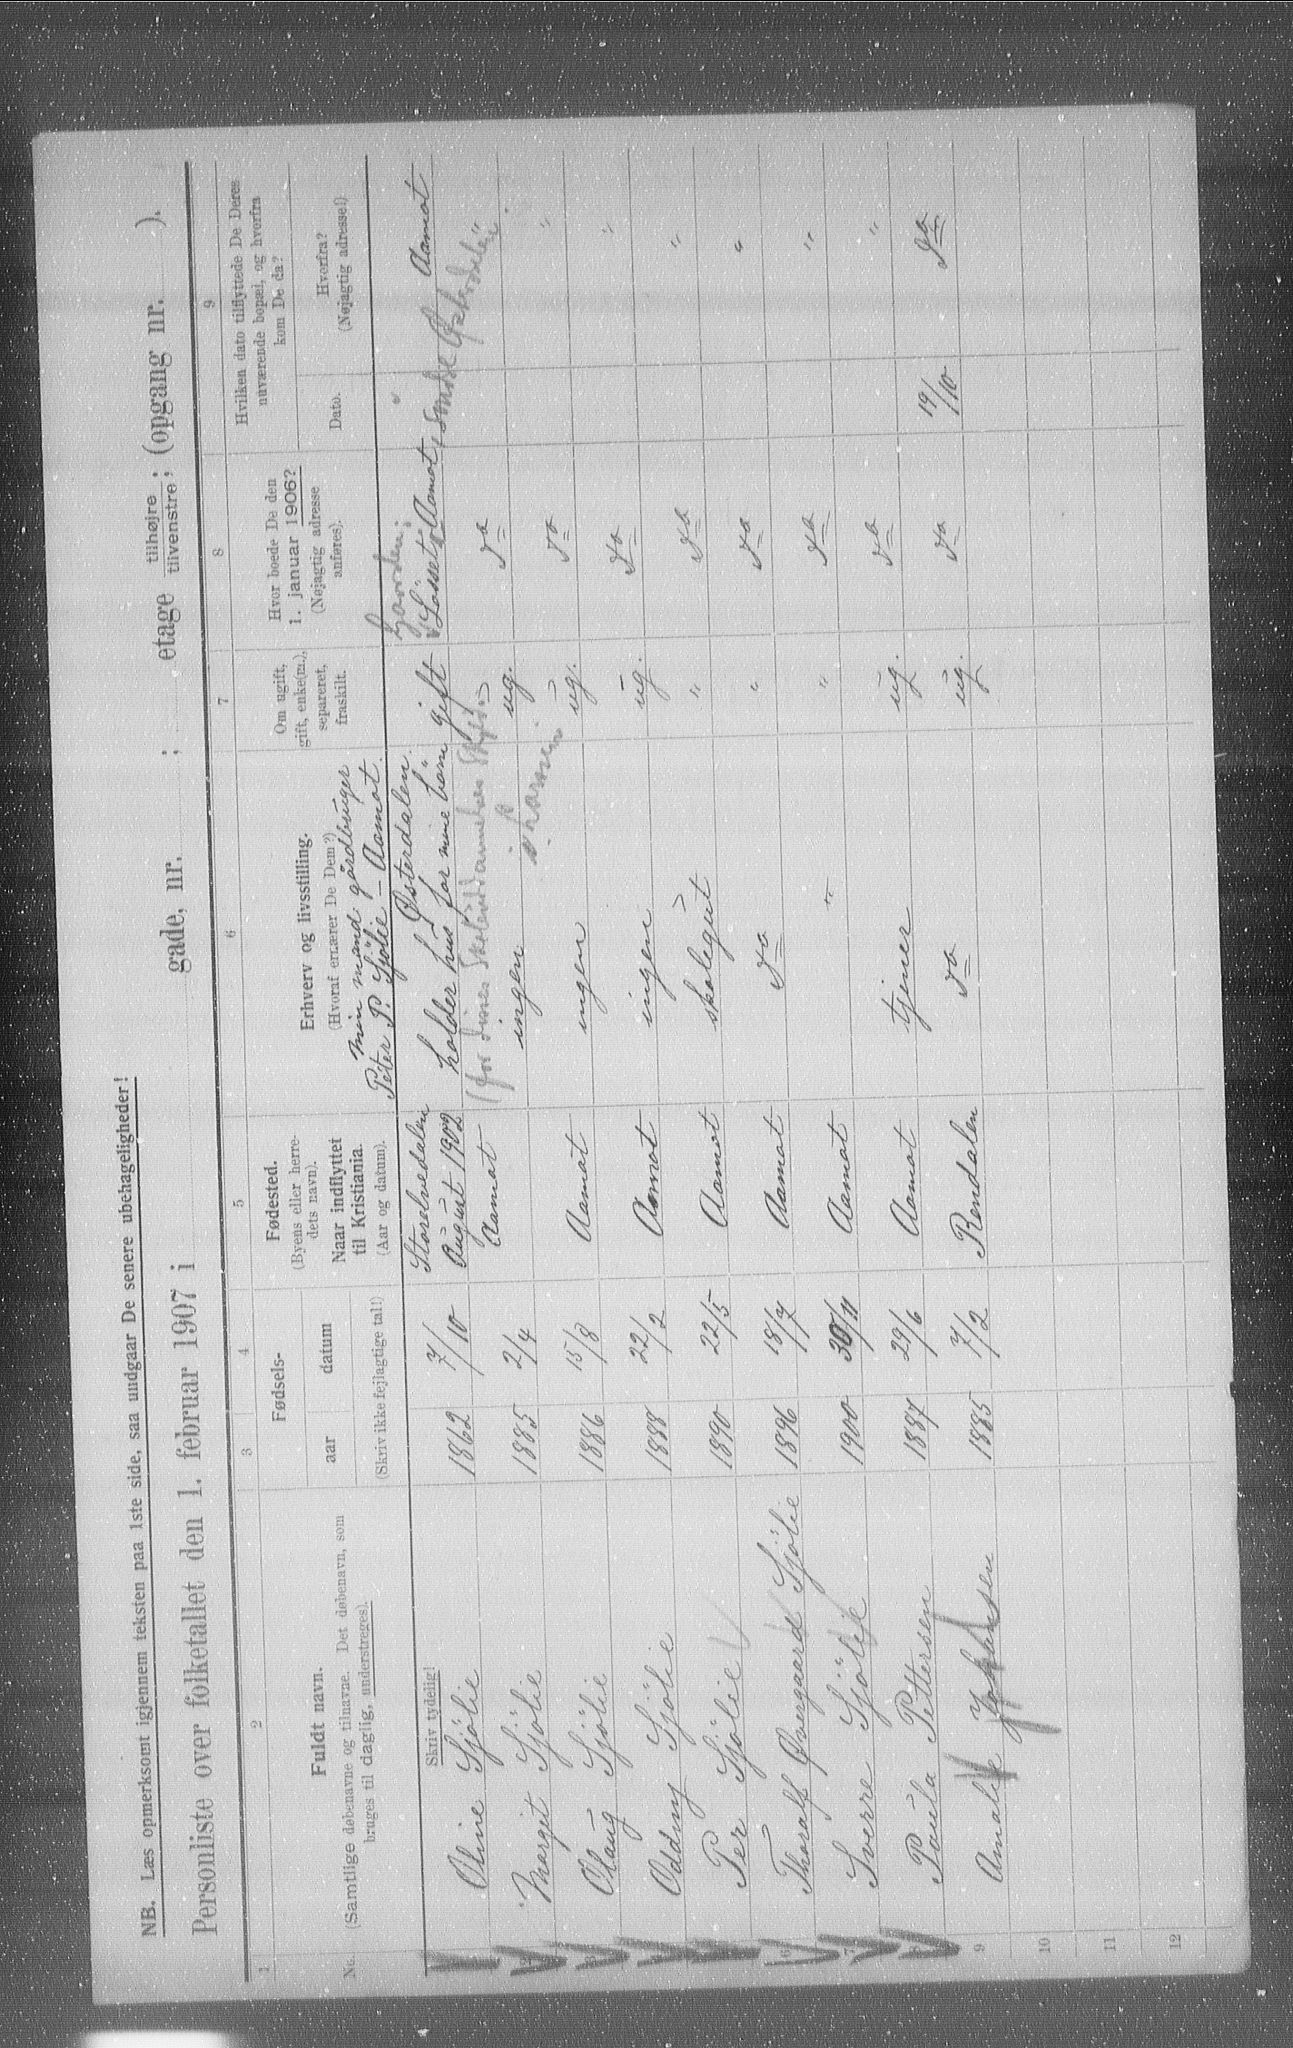 NB. Læs opmerksomt igjennem teksten paa 1ste side, saa undgaar De senere ubehageligheder!
Personliste over folketallet den 1. februar 1907 i gade, nr. ; etage tilhøjre tilvenstre ; (opgang nr. ).
1 2 3 4 5 6 7 8 9
No.
Fuldt navn.
(Samtlige døbenavne og tilnavne. Det døbenavn, som
bruges til daglig, understreges).
Skriv tydelig!
Fødsels-
aar datum
(Skriv ikke fejlagtige tal!)
Fødested.
(Byens eller herre-
dets navn).
Naar indflyttet
til Kristiania.
(Aar og datum).
Erhverv og livsstilling.
(Hvoraf ernærer De Dem?)
Om ugift,
gift, enke(m.),
separeret,
fraskilt.
Hvor boede De den
1. januar 1906?
(Nøjagtig adresse
anføres).
Hvilken dato tilflyttede De Deres
nuværende bopæl, og hvorfra
kom De da?
Dato.
Hvorfra?
(Nøjagtig adresse!)
min mand gårdbruger
Peter P. Sjölie – Aamot.
Østerdalen.
Oline Sjölie 1862 7/10 Storelvedalen August 1902 holder hus for mine börn gift Gaarden Aamot, Søndre Østerdalen Aamot
Margit Sjölie 1885 2/4 Aamot ingen ug. do "
Olaug Sjölie 1886 15/8 Aamot ingen ug. do "
Oddny Sjölie 1888 22/2 Aamot ingen ug. do "
Per Sjölie 1890 22/5 Aamot skolegut " do "
6 Thoralf Øvergaard Sjölie 1896 18/7 Aamot do " do "
7 Sverre Sjölie 1900 30/11 Aamot " " do "
8 Paula Pettersen 1887 29/6 Aamot tjener ug. do "
9 Amalie Johansen 1885 7/2 Rendalen do ug. do 19/10 do
10
11
12